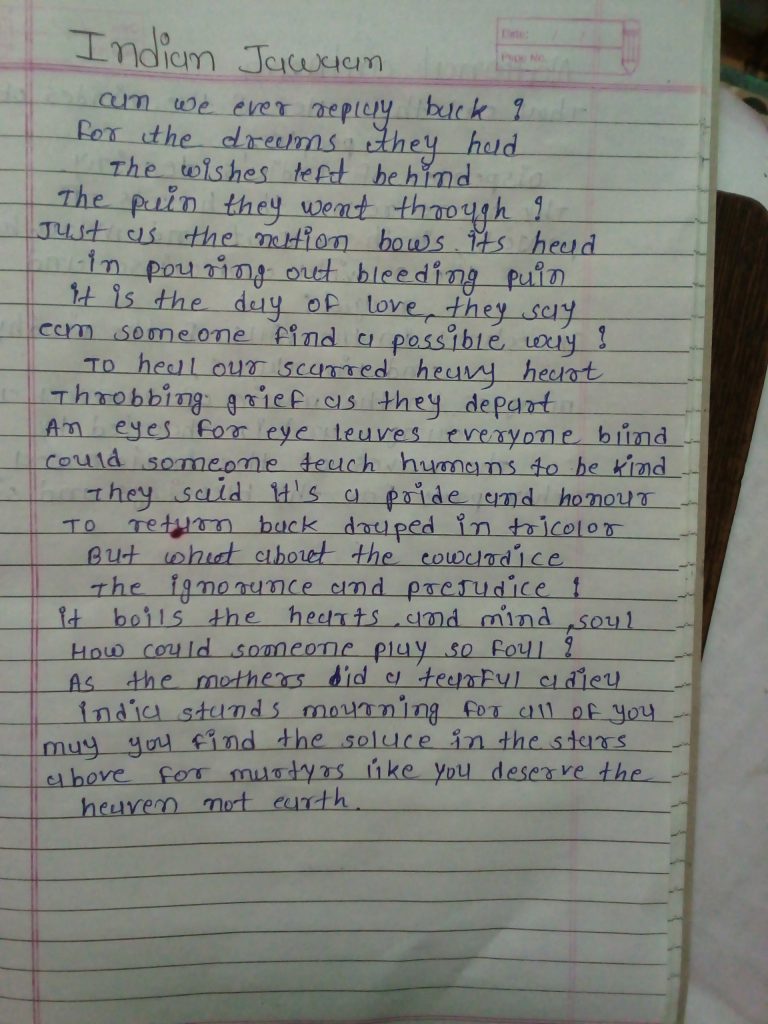 Indian Jawaan
Date: / /
Page No.
can we ever replay back ?
For the dreams they had
The wishes left behind
The pain they went through ?
Just as the nation bows its head
in pouring out bleeding pain
it is the day of love, they say
can someone find a possible way ?
To heal our scarred heavy heart
Throbbing grief as they depart
An eyes for eye leaves everyone blind
could someone teach humans to be kind
They said it's a pride and honour
To return back draped in tricolor
But what about the cowardice
The ignorance and prejudice !
it boils the hearts and mind, soul
How could someone play so foul ?
As the mothers did a tearful adieu
india stands mourning for all of you
may you find the solace in the stars
above for martyrs like you deserve the
heaven not earth.